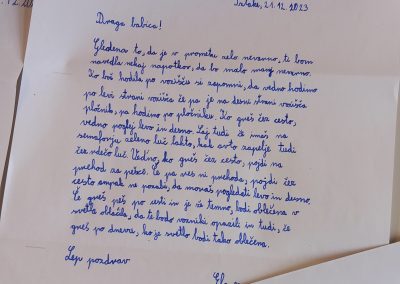 Iršake, 21. 12. 2023
Draga babica!
Glede na to, da je v prometu zelo nevarno, ti bom
navedla nekaj napotkov, da bo malo manj nevarno.
Ko boš hodila po vozišču si zapomni, da vedno hodimo
po levi strani vozišča če pa je na desni strani vozišča
pločnik, pa hodimo po pločniku. Ko greš čez cesto,
vedno poglej levo in desno. Saj tudi če imaš na
semaforju zeleno luč lahko, kak avto zapelje tudi
čez rdečo luč. Vedno, ko greš čez cesto, pojdi na
prehod za pešce. Če pa ves ni prehoda, pojdi čez
cesto ampak ne pozabi, da moraš pogledati levo in desno.
Če greš peš po cesti in je že temno, bodi oblečena v
svetla oblačila, da te bodo vozniki opazili in tudi, če
greš po dnevu, ko je svetlo bodi tako oblečena.
Lep pozdrav